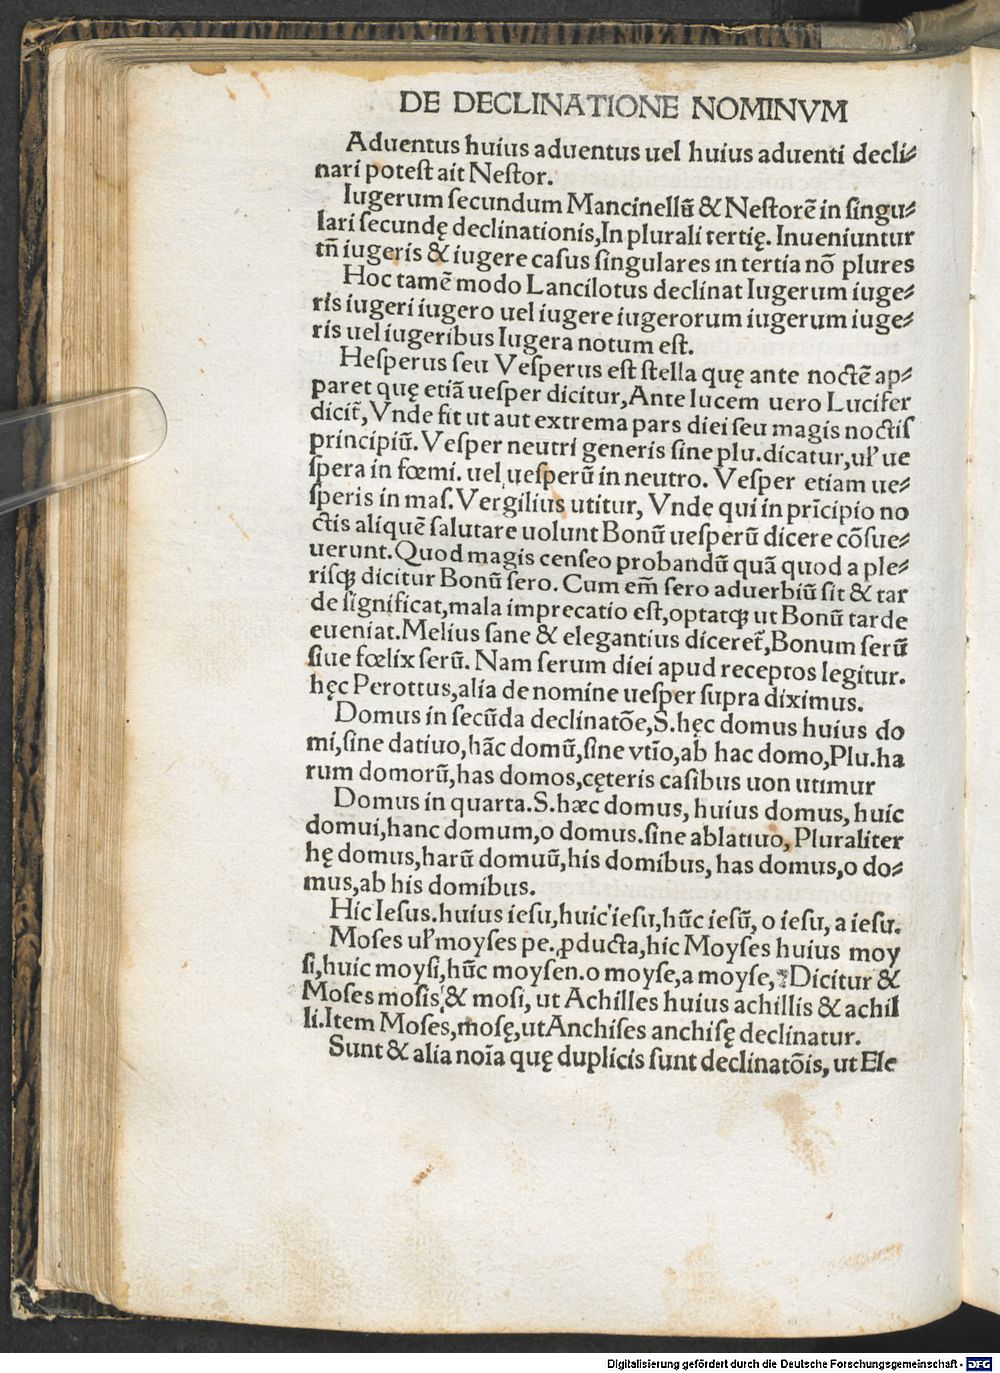 DE DECLINATIONE NOMINVM
Aduentus huius aduentus uel huius aduenti decli⸗
nari poteſt ait Neſtor.
Iugerum ſecundum Mancinellū & Neſtorē in ſingu⸗
lari ſecundę declinationis,In plurali tertię. Inueniuntur
tñ iugeris & iugere caſus ſingulares in tertia nō plures
Hoc tamē modo Lancilotus declinat Iugerum iuge⸗
ris iugeri iugero uel iugere iugerorum iugerum iuge⸗
ris uel iugeribus Iugera notum eſt.
Heſperus ſeu Veſperus eſt ſtella quę ante noctē ap⸗
paret quę etiā ueſper dicitur,Ante lucem uero Lucifer
dicit̄, Vnde fit ut aut extrema pars diei ſeu magis noctiſ
principiū. Veſper neutri generis ſine plu.dicatur,ul̓ ue
ſpera in fœmi. uel ueſperū in neutro. Veſper etiam ue⸗
ſperis in maſ. Vergilius utitur, Vndę qui in prīcipio no
ctis aliquē ſalutare uolunt Bonū ueſperū dicere cōſue⸗
uerunt. Quod magis cenſeo probandū quā quod a ple⸗
riſqꝫ dicitur Bonū ſero. Cum em̄ ſero aduerbiū ſit & tar
de ſignificat,mala imprecatio eſt,optatqꝫ ut Bonū tarde
eueniat. Melius ſane & elegantius diceret̄,Bonum ſerū
ſiue fœlix ſerū. Nam ſerum diei apud receptos legitur.
hęc Perottus,alia de nomine ueſper ſupra diximus.
Domus in ſecūda declinatōe,S.hęc domus huius do
mi,ſine datiuo,hāc domū,ſine vtīo,ab hac domo,Plu.ha
rum domorū,has domos,cęteris caſibus uon utimur
Domus in quarta.S.hæc domus, huius domus, huic
domui,hanc domum,o domus.ſine ablatiuo, Pluraliter
hę domus,harū domuū,his domibus, has domus,o do⸗
mus,ab his domibus.
Hic Ieſus.huius ieſu,huic ieſu,hūc ieſū, o ieſu, a ieſu.
Moſes ul̓ moyſes pe. ꝓducta,hic Moyſes huius moy
ſi,huic moyſi,hūc moyſen.o moyſe,a moyſe, Dicitur &
Moſes moſis & moſi, ut Achilles huius achillis & achil
li.Item Moſes,moſę,ut Anchiſes anchiſę declinatur.
Sunt & alia noīa quę duplicis ſunt declinatōis, ut Ele
Digitalisierung gefördert durch die Deutsche Forschungsgemeinschaft - DFG